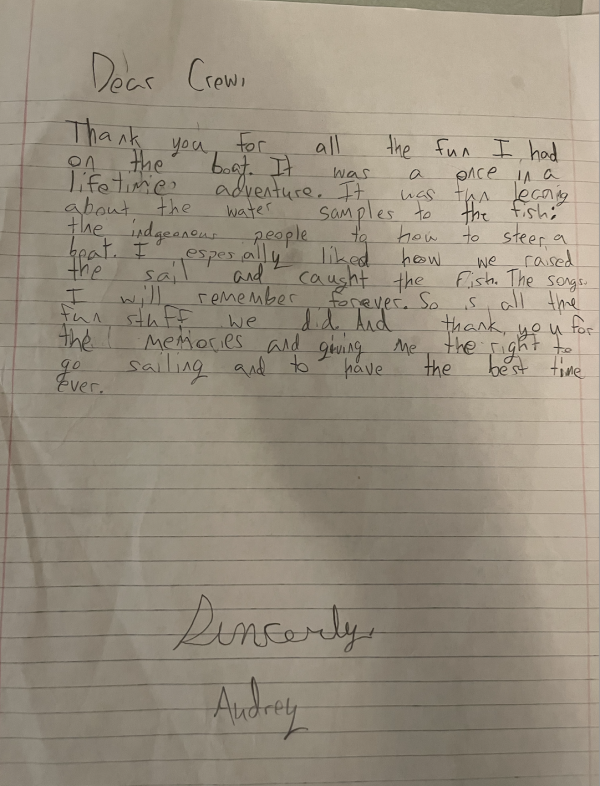 Dear Crew,
Thank you for all the fun I had
on the boat. It was a once in a
lifetimes adventure. It was fun learnig
about the water samples to the fish;
the indgeoneus people to how to steer a
boat. I espesially liked how we raised
the sail and caught the fish. The songs
I will remember forever. So is all the
fun stuff we did. And thank you for
the memories and giving me the right to
go sailing and to have the best time
ever.
Sincerly,
Audrey